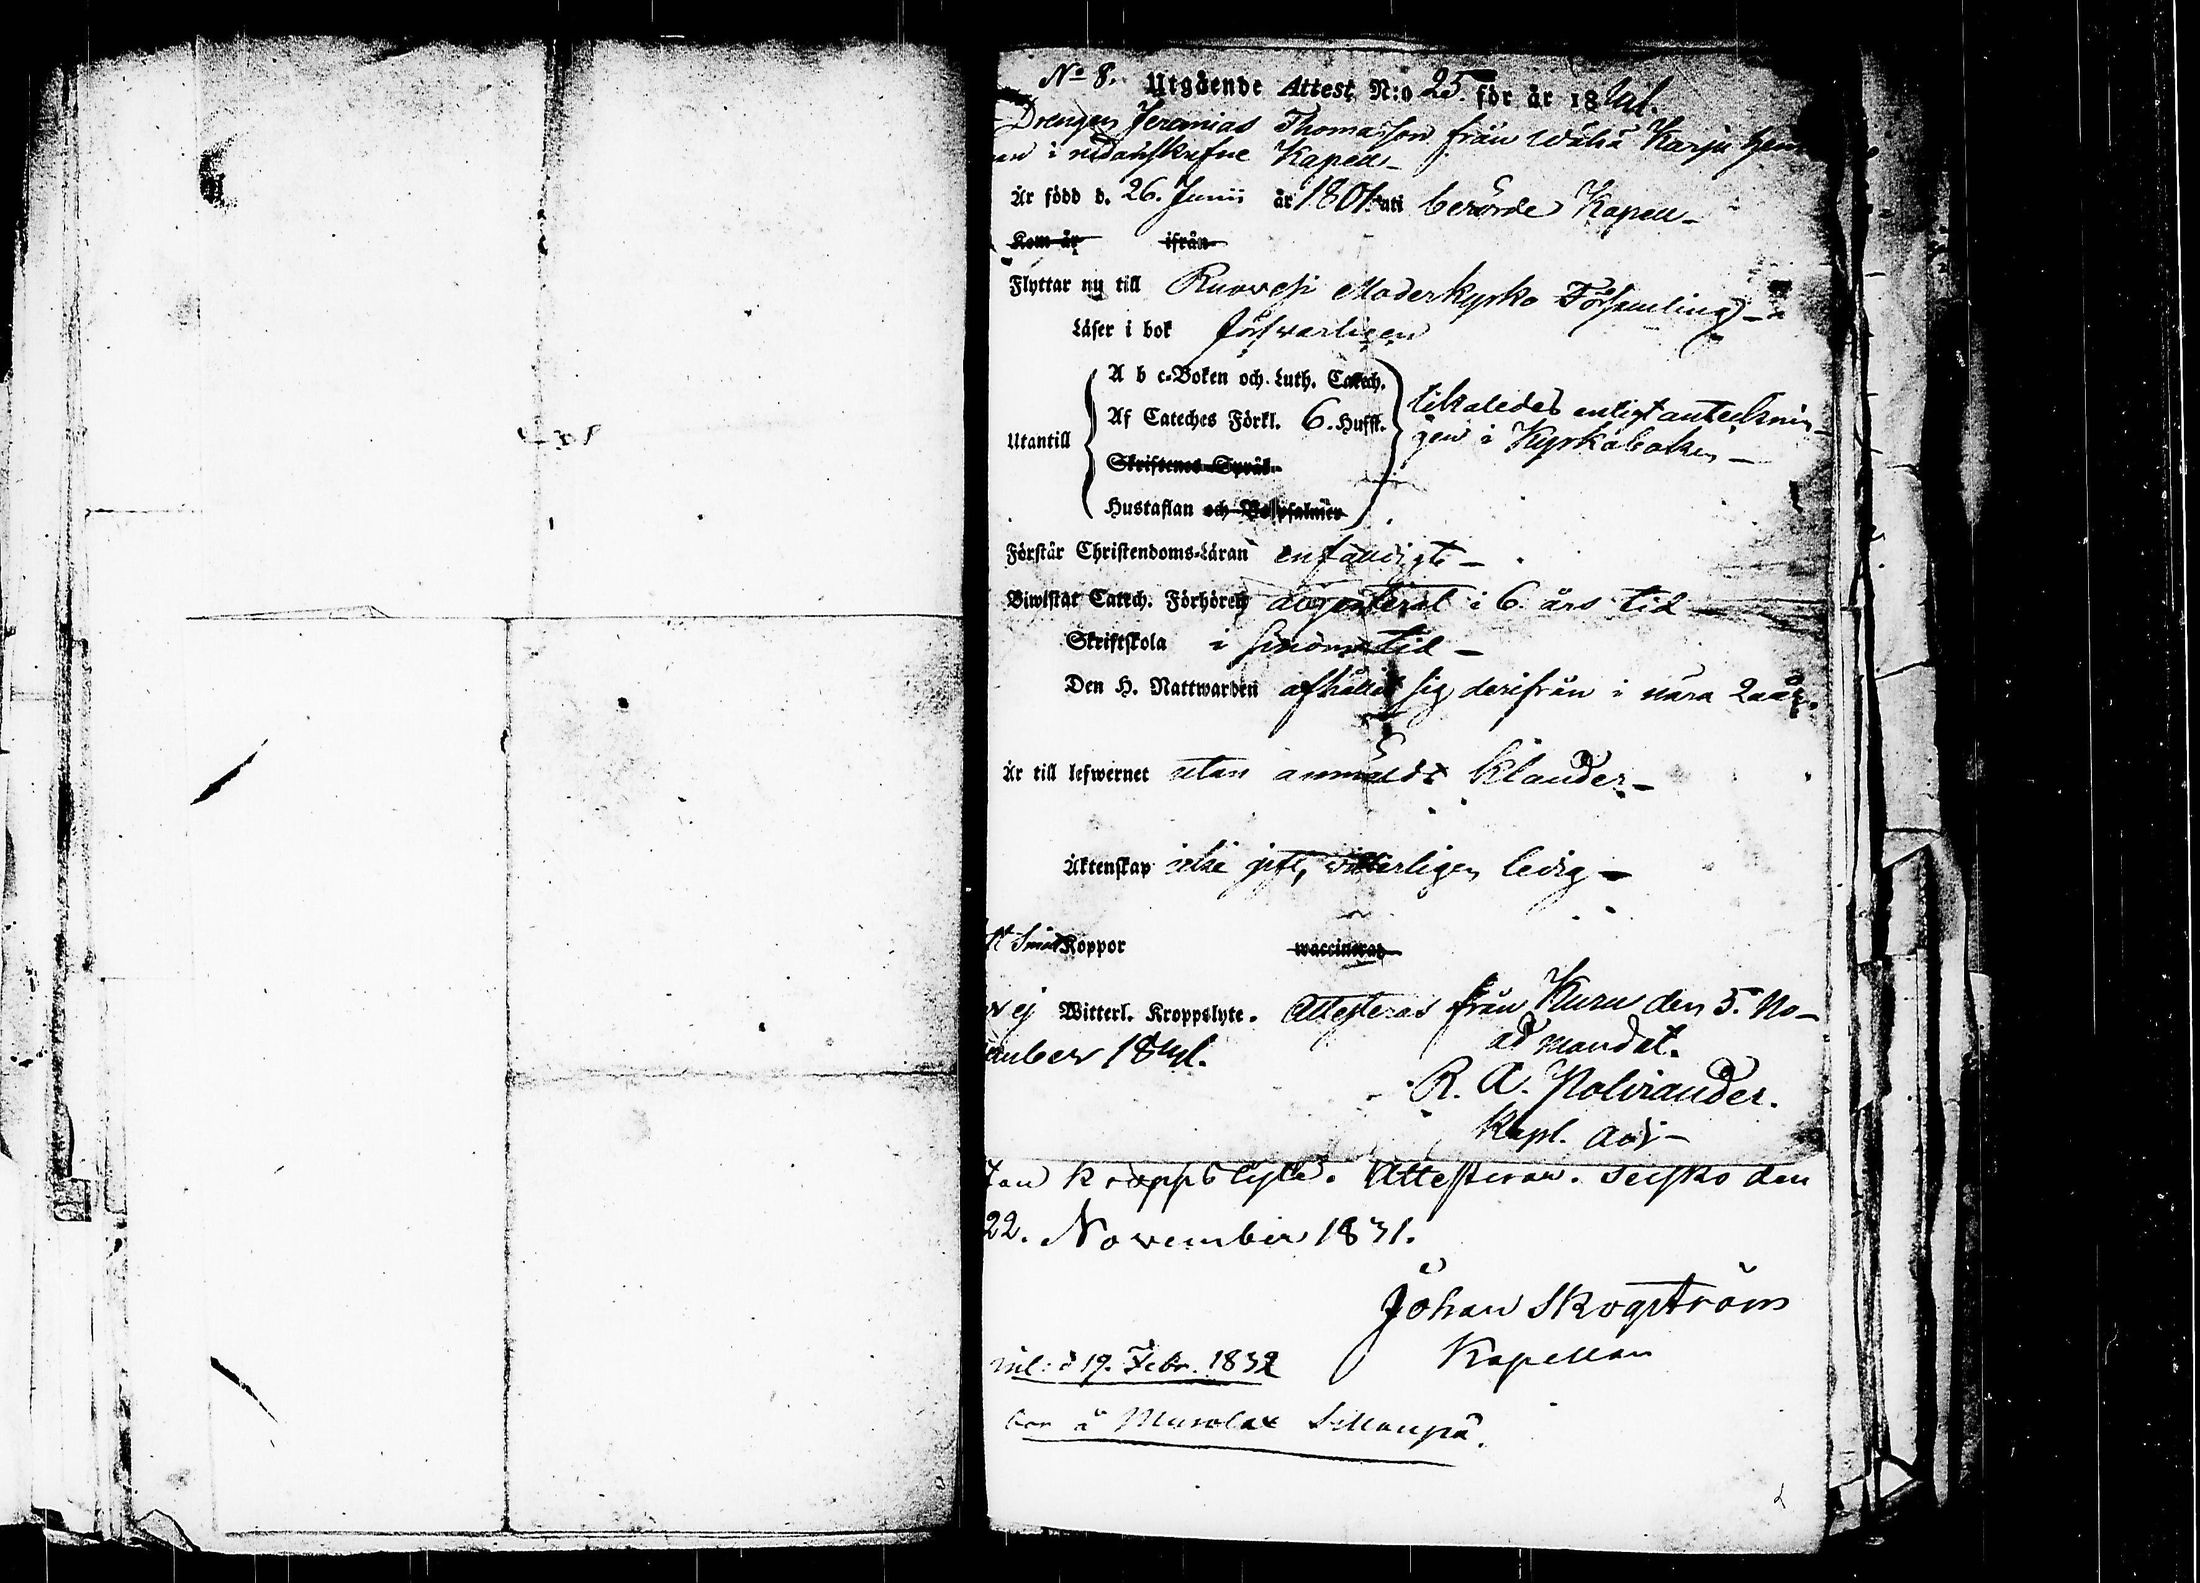 No 8. Utgående Attest N:o 25. för år 18
Drengen Jeremias Thomasson från Wähä Karju hem
i nedanskrefne Kapell
Är född d. 26. Junii år 1801. uti berörde Kapell
Kom år ifrån
Flyttar nu till Ruovesi Moderkyrko Församling
Läser i bok försvarligen
Utantill
A b c-Boken och Luth. Catech.
Af Cateches Förkl. 6. Hufst.
Skriftenes Språk
Hustaflan och
likaledes enligt anteknin-
gen i Kyrkoboken
Förstår Christendoms-Läran enfaldigt
Biwistat Catech. Förhören i 6 års tid
Skriftskola i tid
Den H. Nattwarden afhållit sig derifrån i nära 2 år.
Är till lefwernet utan anmäldt klander
Äktenskap icke gift, vitterligen ledig
Koppor waccinerad
ej Witterl. Kroppslyte. Attesteras från Kuru den 5. No-
ember 18
ad mandat.
R. A. Polviander.
Kapl. Adj
tan kroppslyte. Attesteras. den
22. November 1831.
Johan Skogström
Kapellan
inl: d 19. Febr. 1832
bor å Murolax